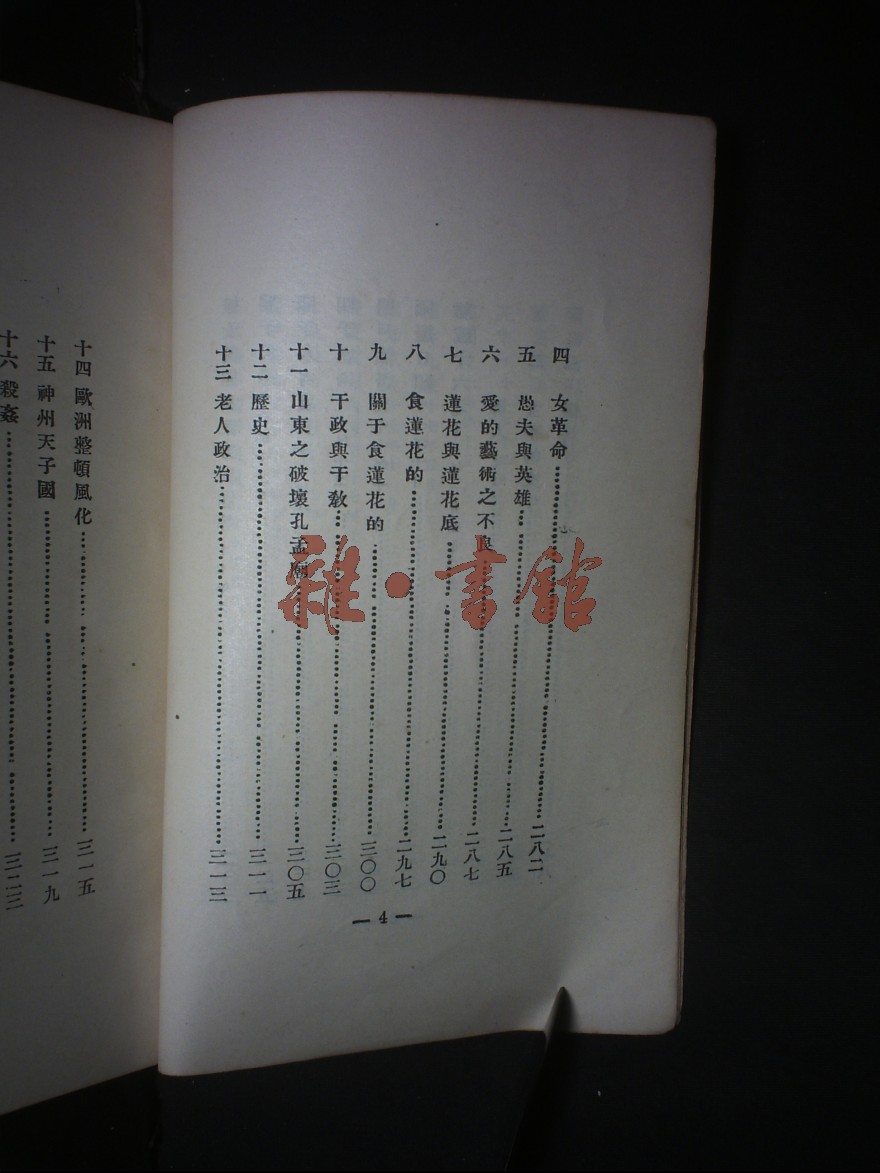 四 女革命……二八二
五 愚夫與英雄……二八五
六 愛的藝術之不良……二八七
七 蓮花與蓮花底……二九〇
八 食蓮花的……二九七
九 關于食蓮花的……三〇〇
十 干政與干教……三〇三
十一 山東之破壞孔孟廟……三〇五
十二 歷史……三一一
十三 老人政治……三一三
— 4 —
十四 歐洲整頓風化……三一五
十五 神州天子國……三一九
十六 殺姦……三二三
雜·書館